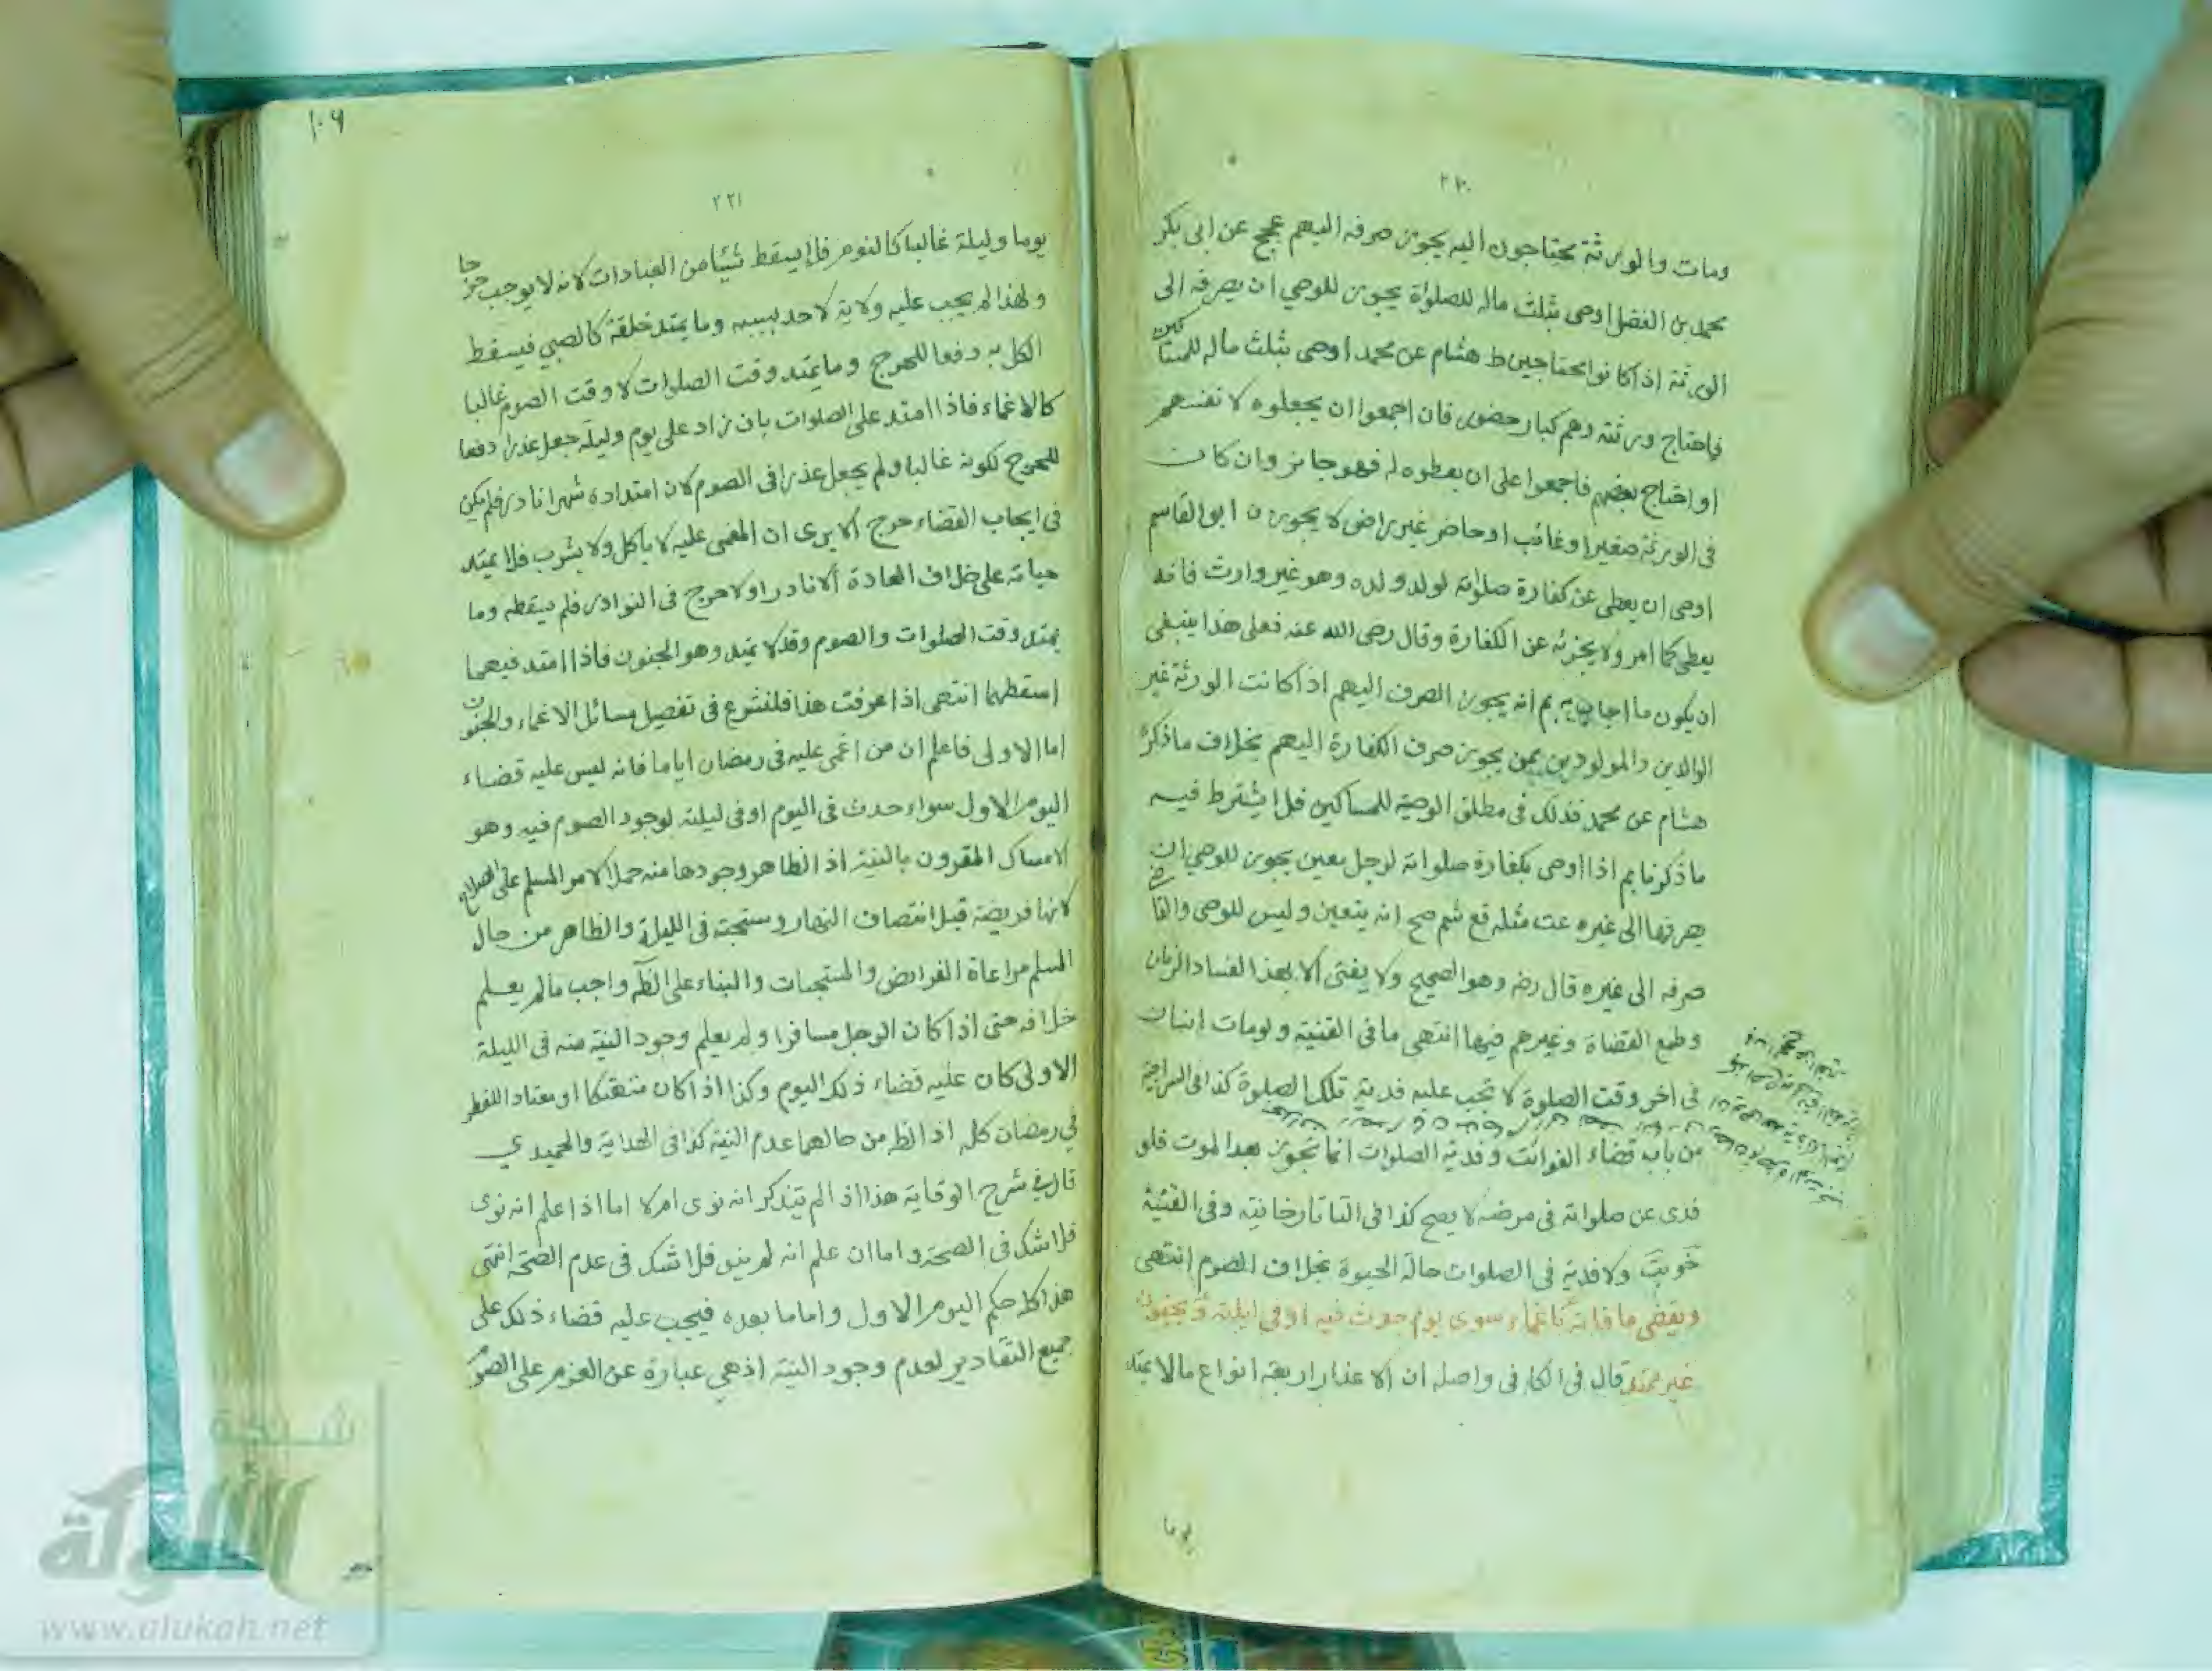 ٢٢٠
ومات والورثة يحتاجون اليه يجوز صرفه اليهم عجح عن ابى بكر
محمد بن الفضل اوصى بثلث ماله للصلواة يجوز للوصي ان يصرفه الى
الورثة اذا كانوا محتاجين ط هشام عن محمد اوصى بثلث ماله للمساكين
فاحتاج ورثته وهم كبار حضور فان اجمعوا ان يجعلوه لانفسهم
او احتاج بعضهم فاجمعوا على ان يعطوه له فهو جائز وان كان
فى الورثة صغير او غائب او حاضر غير راضى لا يجوز ن ابو القاسم
اوصى ان يعطى عن كفارة صلواته لولد ولده وهو غير وارث فانه
يعطى كما امر ولا يجزئه عن الكفارة وقال رضى الله عنه فعلى هذا ينبغى
ان يكون ما اجاب به بم انه يجوز الصرف اليهم اذا كانت الورثة غير
الوالدين والمولودين بمن يجوز صرف الكفارة اليهم بخلاف ما ذكره
هشام عن محمد فذلك فى مطلق الوصية للمساكين فلا يشترط فيه
ما ذكرنا بم اذا اوصى بكفارة صلواته لرجل معين يجوز للوصي ان
يصرفها الى غيره عت مثله قع شم صح انه يتعين وليس للوصى والقاضى
صرفه الى غيره قال رضه وهو الصحيح ولا يفتى الا بهذا الفساد الزمان
وطمع القضاة وغيرهم فيها انتهى ما فى القنية ولو مات انسان
فى اخر وقت الصلوة لا تجب عليه فدية تلك الصلوة كذا فى السراجية
من باب قضاء الفوائت وفدية الصلوات انما تجوز بعد الموت فلو
فدى عن صلواته فى مرضه لا يصح كذا فى التاتارخانية وفى القنية
ولا فدية فى الصلوات حالة الحيوة بخلاف الصوم انتهى
ويقضى ما فاته باغماء سوى يوم حدث فيه او فى ليلته وبجنون
غير ممتد قال فى الكافى واصله ان الاعذار اربعة انواع ما لا يمتد
يوما
١٠٩
٢٢١
يوما وليلة غالبا كالنوم فلا يسقط شيئا من العبادات لانه لا يوجب حرجا
ولهذا لم يجب عليه ولاية لاحد بسببه وما يمتد خلقة كالصبي فيسقط
الكل به دفعا للحرج وما يمتد وقت الصلوات لا وقت الصوم غالبا
كالاغماء فاذا امتد على الصلوات بان زاد على يوم وليلة جعل عذرا دفعا
للحرج لكونه غالبا ولم يجعل عذرا فى الصوم لان امتداده شهرا نادر فلم يكن
فى ايجاب القضاء حرج الا يرى ان المغمى عليه لا يأكل ولا يشرب فلا يمتد
حياته على خلاف العادة الا نادرا ولا حرج فى النوادر فلم يسقطه وما
يمتد وقت الصلوات والصوم وقد لا يمتد وهو الجنون فاذا امتد فيهما
اسقطهما انتهى اذا عرفت هذا فلنشرع فى تفصيل مسائل الاغماء والجنون
اما الاولى فاعلم ان من اغمى عليه فى رمضان اياما فانه ليس عليه قضاء
اليوم الاول سواء حدث فى اليوم او فى ليلته لوجود الصوم فيه وهو
الامساك المقرون بالنية اذ الظاهر وجودها منه حملا لامر المسلم على الصلاح
لانها فريضة قبل انتصاف النهار ومستحبة فى الليلة والظاهر من حال
المسلم مراعاة الفرائض والمستحبات والبناء على الظه واجب ما لم يعلم
خلافه حتى اذا كان الرجل مسافرا ولم يعلم وجود النية منه فى الليلة
الاولى كان عليه قضاء ذلك اليوم وكذا اذا كان متهتكا او معتاد الفطر
في رمضان كله اذ الظه من حالهما عدم النية كذا فى الهداية والحميدي
قال في شرح الوقاية هذا اذا لم يتذكر انه نوى ام لا اما اذا علم انه نوى
فلا شك فى الصحة واما ان علم انه لم ينو فلا شك فى عدم الصحة انتهى
هذا كله حكم اليوم الاول واما ما بعده فيجب عليه قضاء ذلك على
جميع التقادير لعدم وجود النية اذ هي عبارة عن العزم على الصوم
شبكة
الألوكة
www.alukah.net